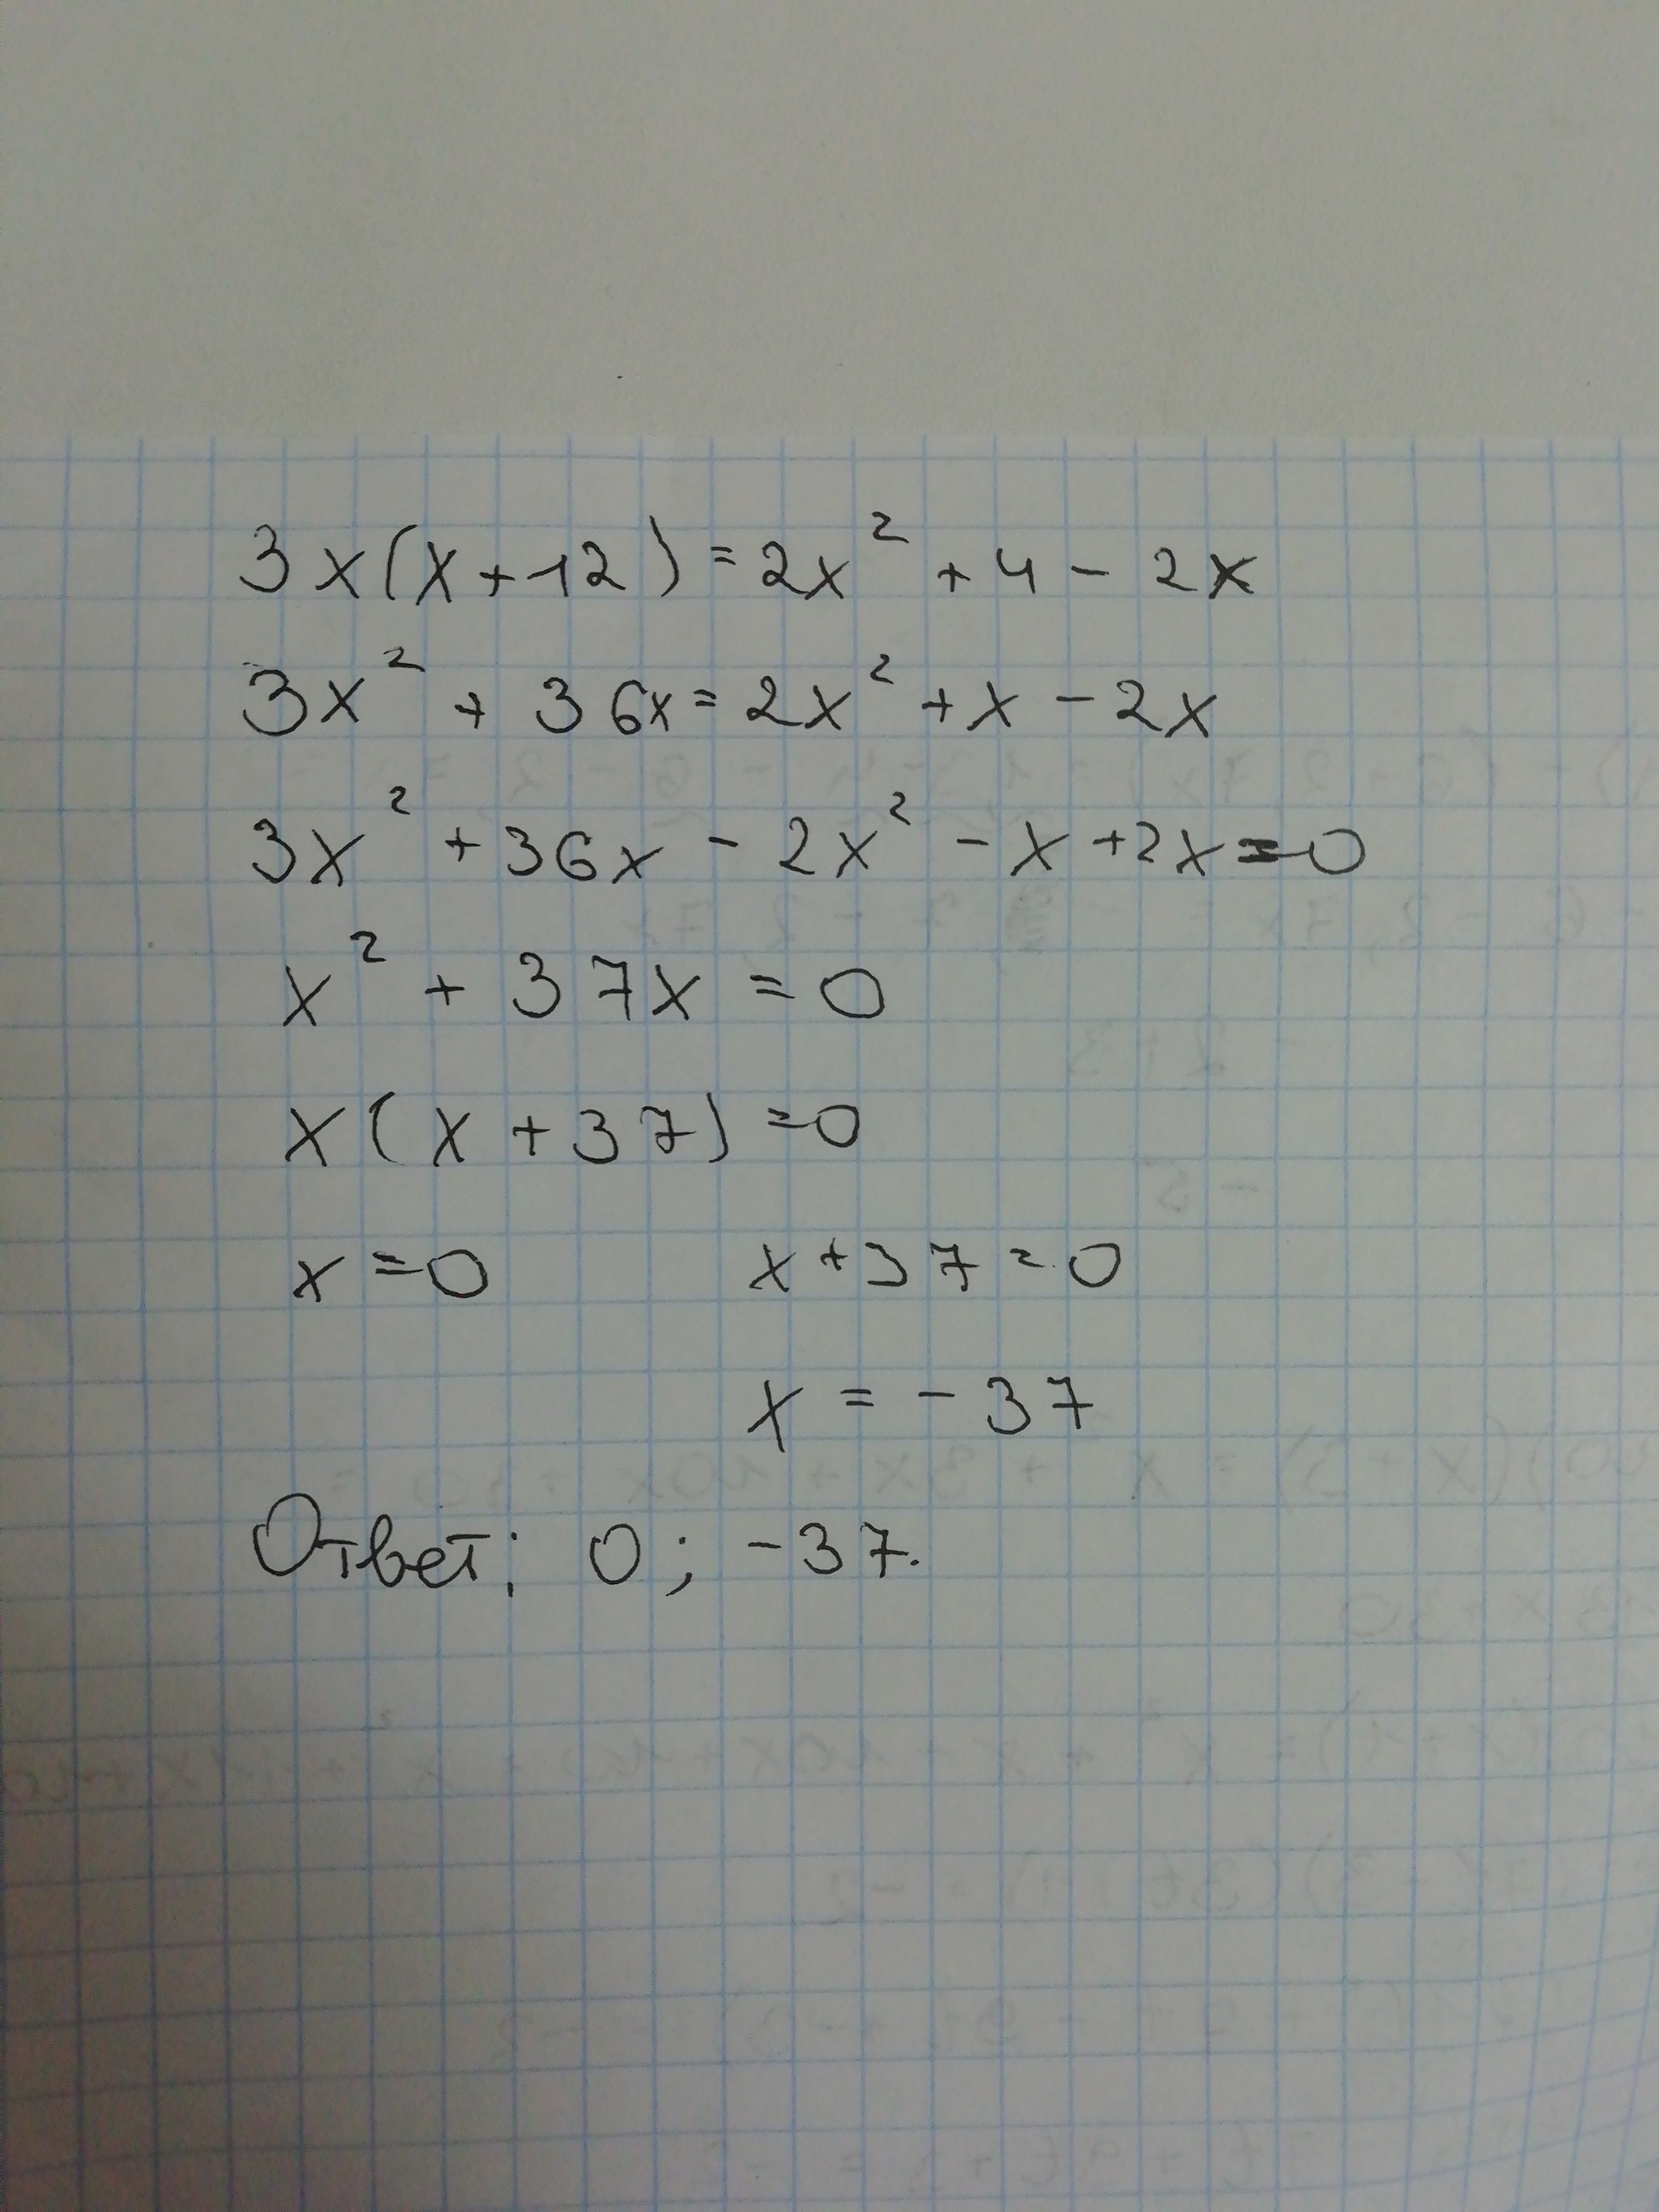 3x(x+12)=2x²+4-2x
3x²+36x=2x²+x-2x
3x²+36x-2x²-x+2x=0
x²+37x=0
x(x+37)=0
x=0 x+37=0
x=-37
Ответ: 0; -37.